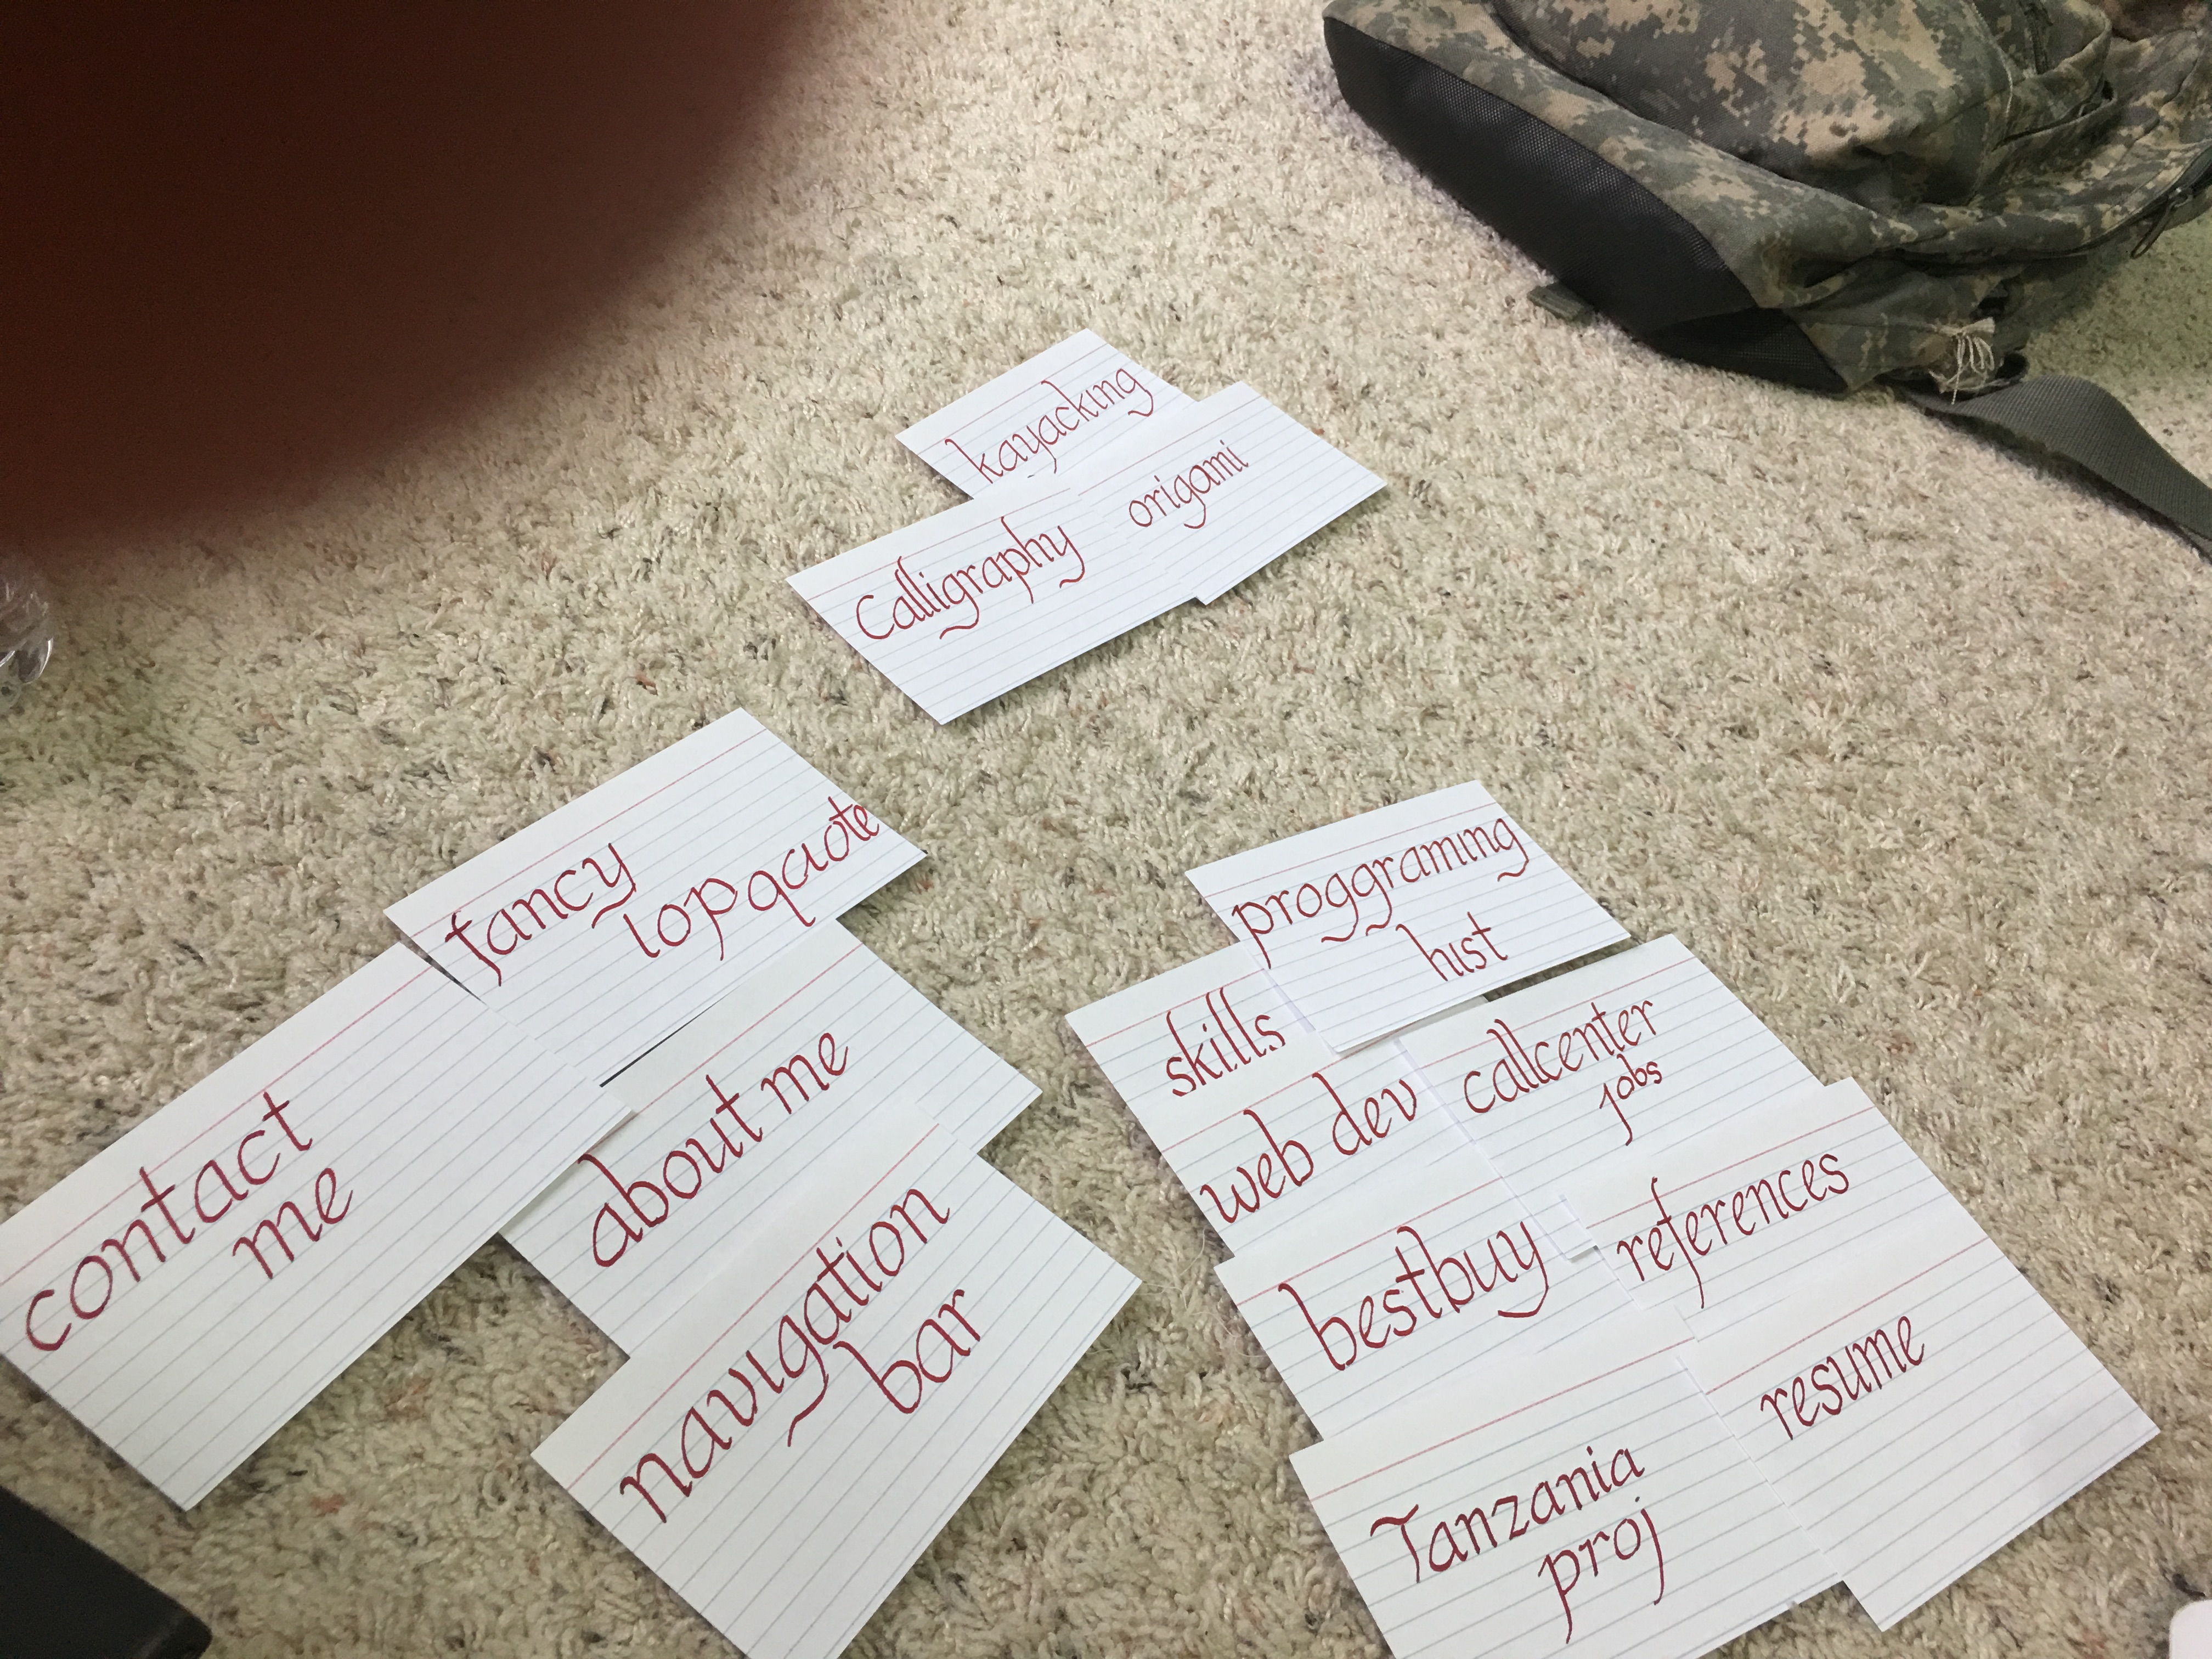 kayacking
origami
Calligraphy
fancy
top quote
contact
me
about me
navigation
bar
proggraming
hist
skills
web dev
callcenter
jobs
bestbuy
references
resume
Tanzania
proj